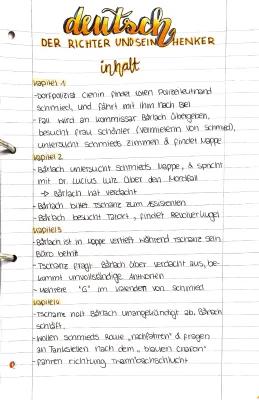 deutsch
DER RICHTER UND SEIN HENKER
inhalt
Kapitel 1
- Dorfpolizist Clenin findet toten Polizeileutnand
Schmied, und fährt mit ihm nach Biel
- Fall wird an Kommissar Bärlach übergeben,
besucht Frau Schönler (Vermieterin von Schmied),
untersucht Schmieds Zimmer & findet Mappe
Kapitel 2
- Bärlach untersucht Schmieds Mappe, & spricht
mit Dr. Lucius Lutz über den Mordfall
→ Bärlach hat Verdacht
- Bärlach bittet Tschanz zum Assistenten
- Bärlach besucht Tatort, findet Revolverkugel
Kapitel 3
- Bärlach ist in Mappe vertieft während Tschanz sein
Büro betritt
- Tschanz fragt Bärlach über Verdacht aus, be-
kommt unvollständige Antworten
- Mehrere "G" im Kalender von Schmied
Kapitel 4
- Tschanz holt Bärlach unangekündigt ab, Bärlach
schläft
- wollen Schmieds Route "nachfahren" & fragen
an Tankstellen nach dem "blauen Charon"
- fahren Richtung Twannbachschlucht